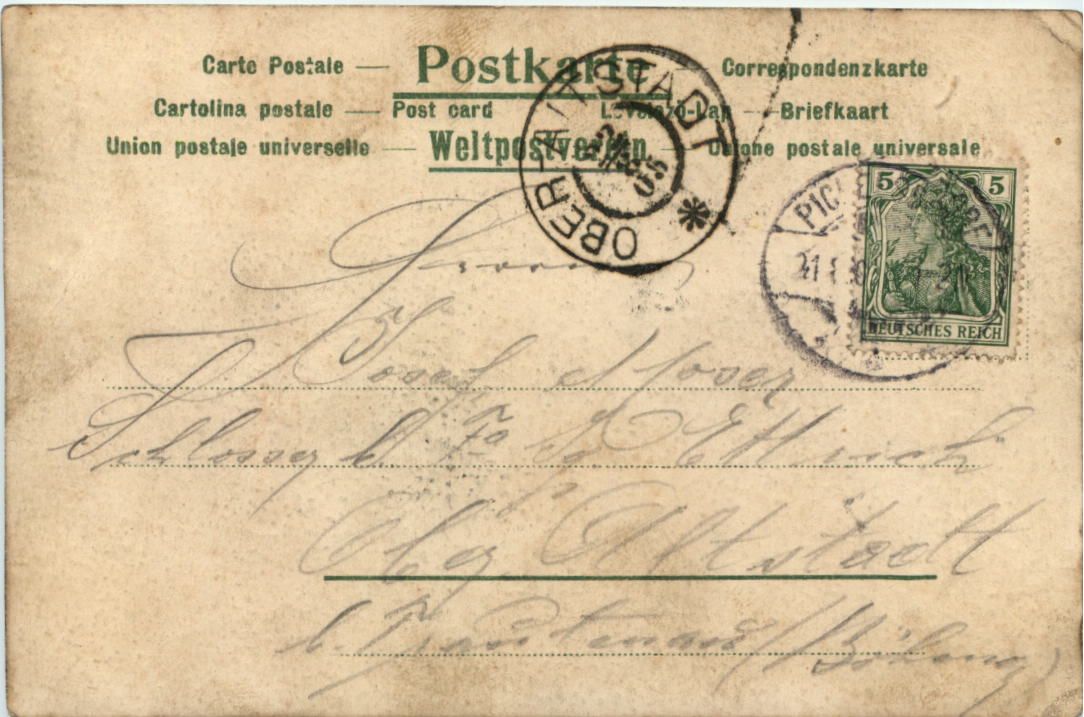 Carte Postale — Postkarte Correspondenzkarte
Cartolina postale — Post card Levelezö-Lap — Briefkaart
Union postale universelle — Weltpostverein — Unione postale universale
OBER-ALTSTADT
05
5 5
DEUTSCHES REICH
Josef
Schlosser b. Fa Ettrich
Ober Altstadt
b. Trautenau (Böhmen)